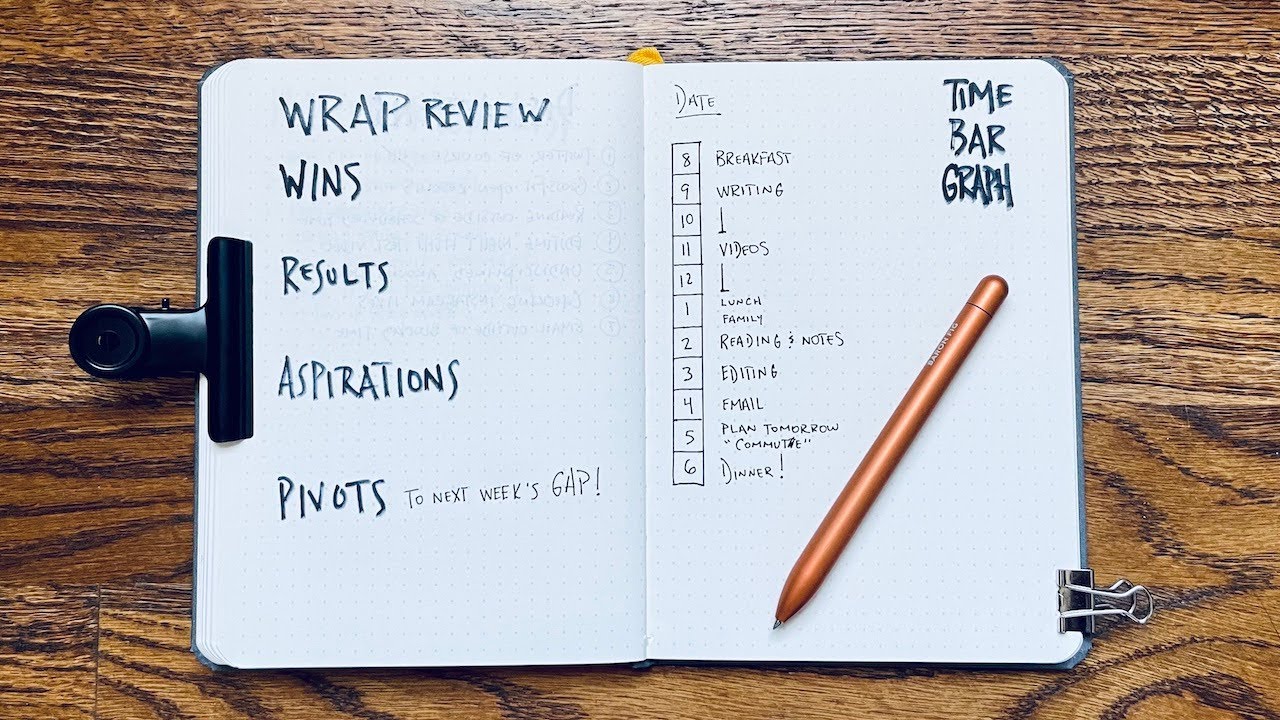 WRAP REVIEW
WINS
RESULTS
ASPIRATIONS
PIVOTS TO NEXT WEEK'S GAP!
DATE
TIME
BAR
GRAPH
8 BREAKFAST
9 WRITING
10
11 VIDEOS
12
1 LUNCH
FAMILY
2 READING & NOTES
3 EDITING
4 EMAIL
5 PLAN TOMORROW
"COMMUTE"
6 DINNER!
BARONFIG